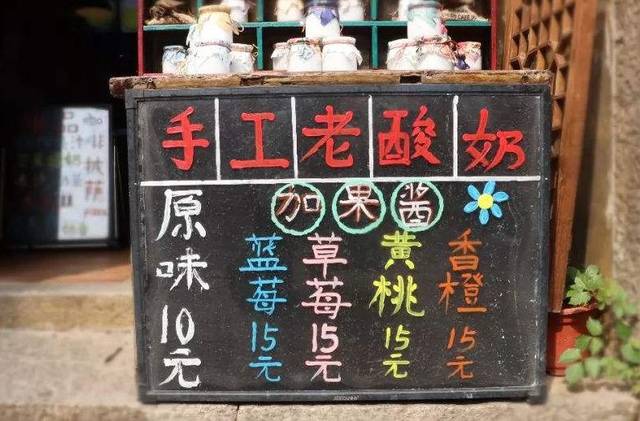 手工老酸奶
加果酱
原味10元
蓝莓15元
草莓15元
黄桃15元
香橙15元